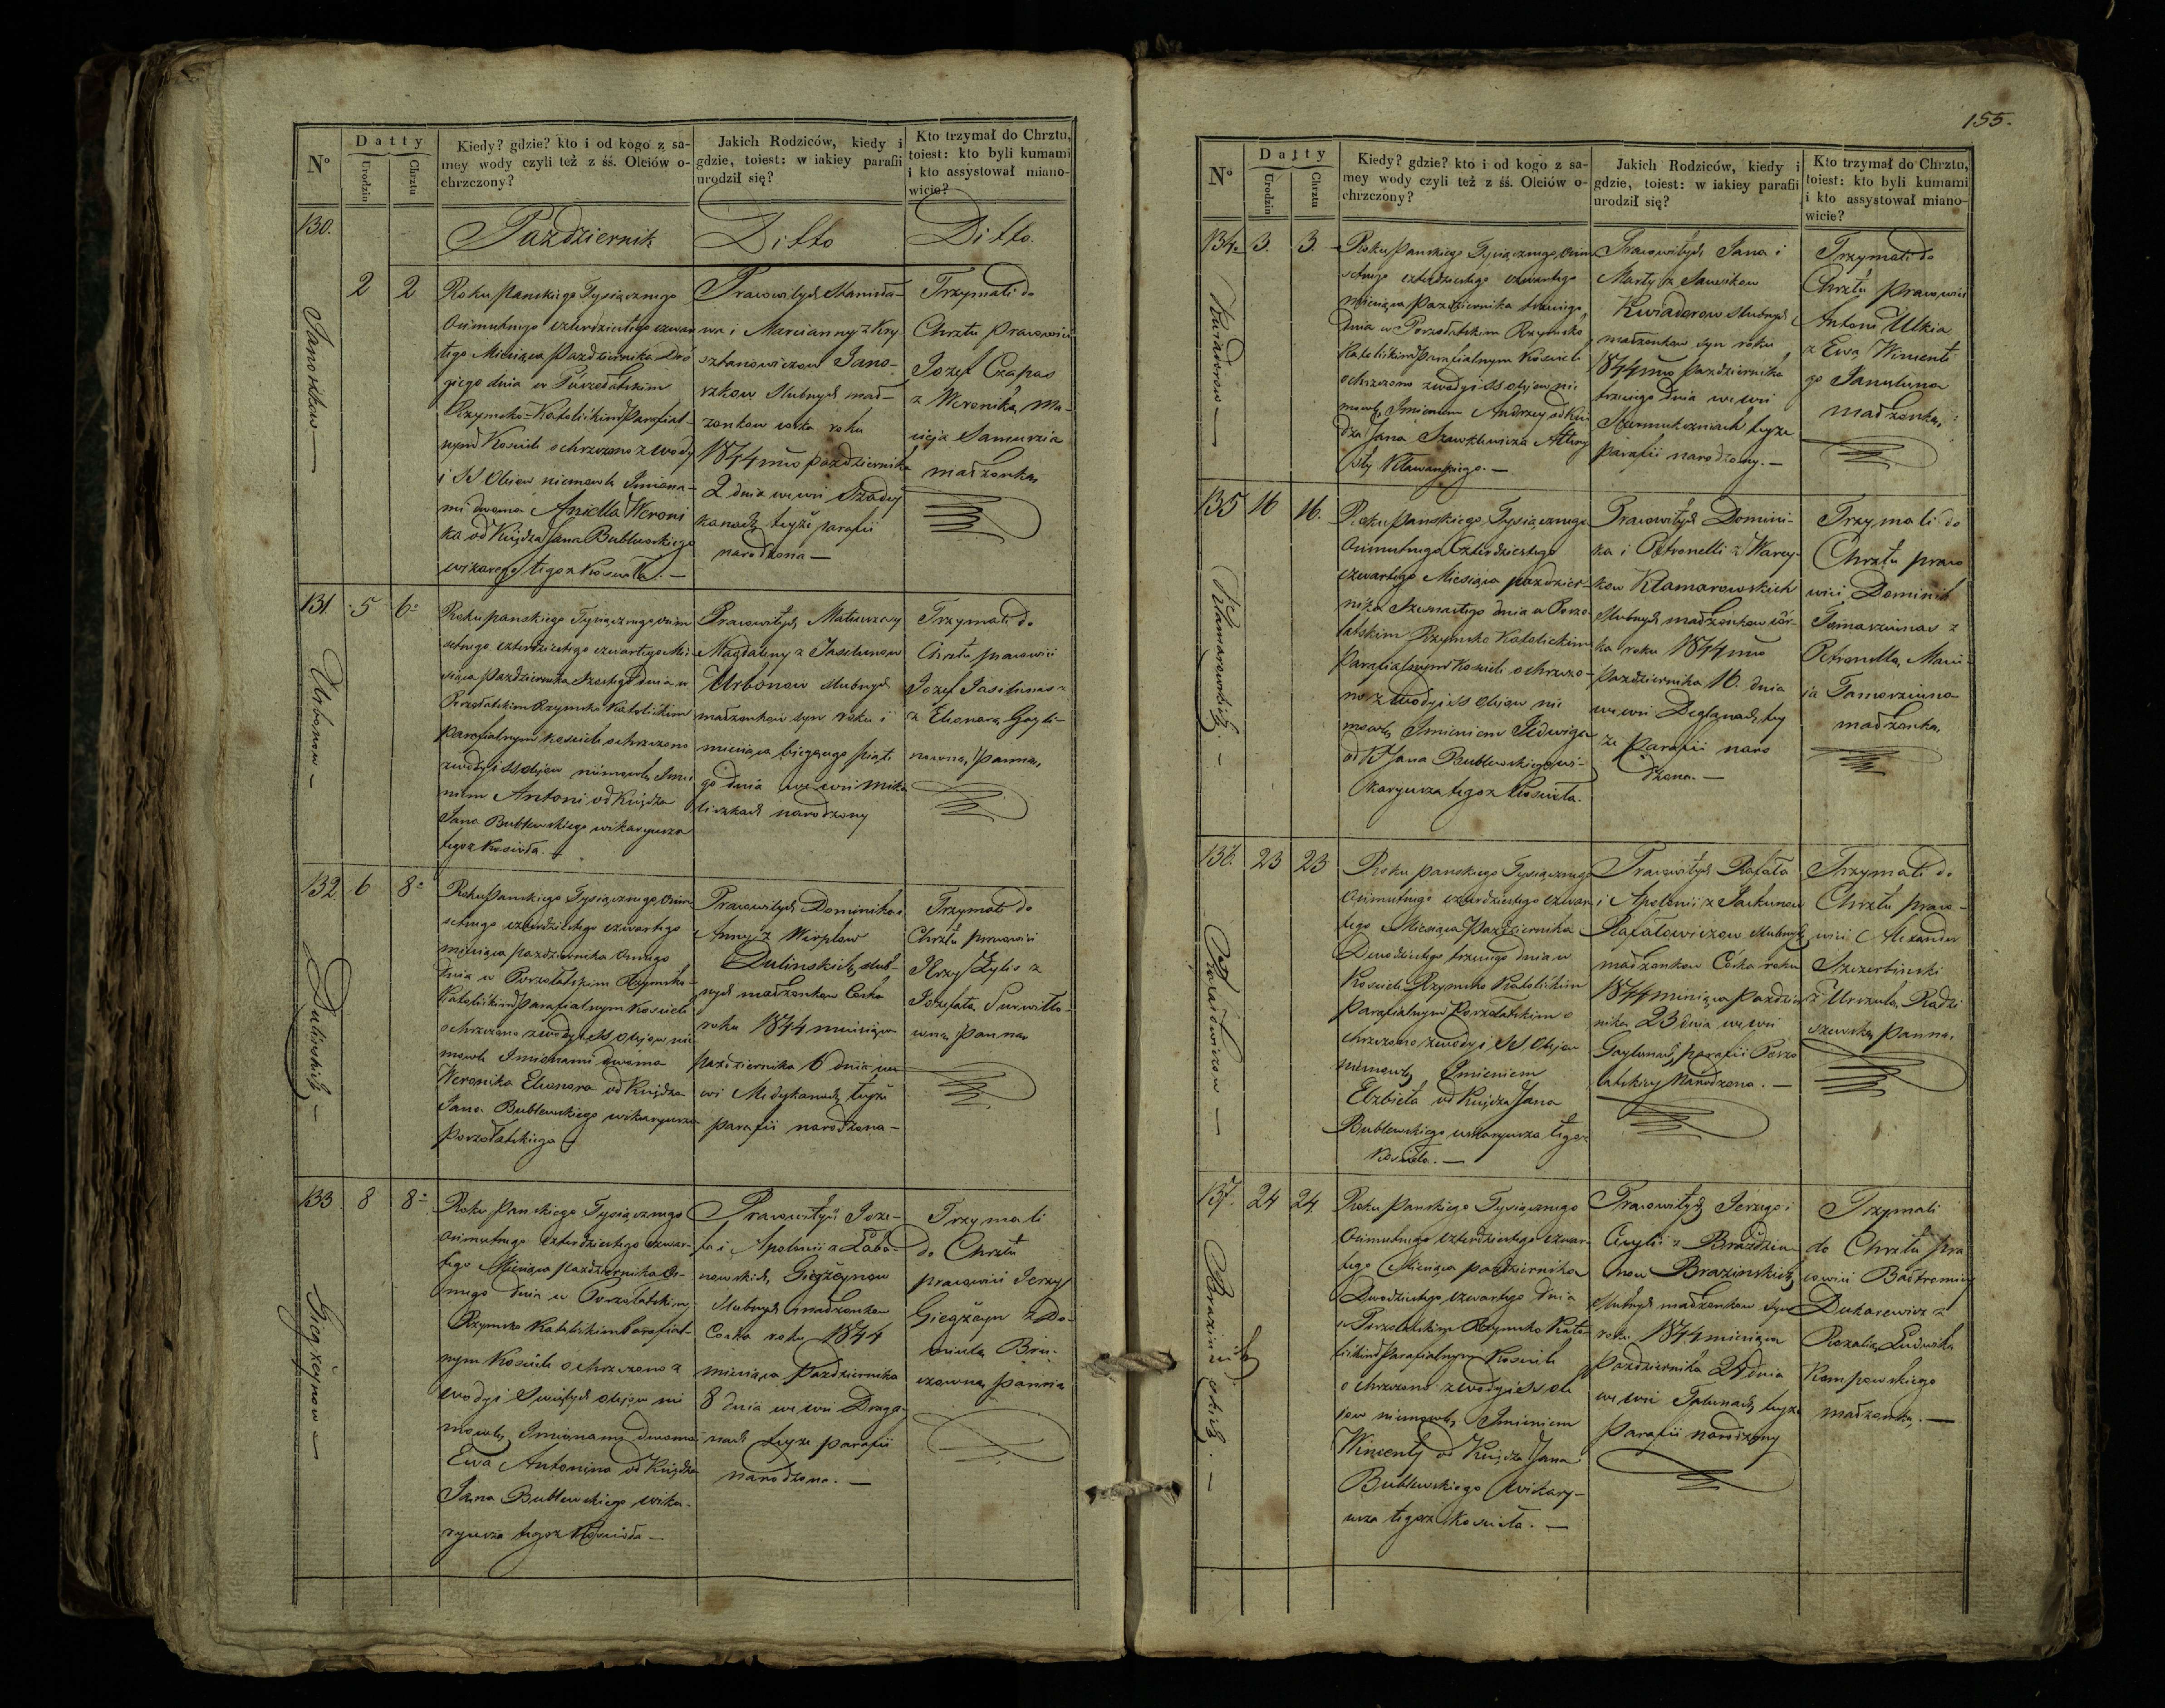 Datty
Nº
Urodzin
Chrztu
Kiedy? gdzie? kto i od kogo z sa-
mey wody czyli też z śś. Oleiów o-
chrzczony?
Jakich Rodziców, kiedy i
gdzie, toiest: w iakiey parafii
urodził się?
Kto trzymał do Chrztu,
toiest: kto byli kumami
i kto assystował miano-
wicie?
130.
Październik
Ditto
Ditto.
2
2
Roku Panskiego Tysiącznego
Osimsetnego czterdziestego czwar
tego Miesiąca Pazdziernika Dru
giego dnia w Porzołatskim
Rzymsko-Katolickim Parafial-
nym Kosciele ochrzczono z wody
i SS Olejow niemowle Imiona-
mi dwoma Aniella Weroni
ka od Księdza Jana Bublewskiego
wikarego tegoz Koscioła. —
Pracowitych Stanisła-
wa i Marcianny z Kry-
sztanowiczow Jano-
szkow slubnych mał-
zonkow corka roku
1844 mco pazdziernika
2 dnia we wsi
teyże parafii
narodzona —
Trzymali do
Chrztu pracowici
Jozef Czapas
z Weroniką Ma-
cieja
małżonką
131.
5
6
Urbonow —
Roku panskiego Tysiącznego osim
setnego czterdziestego czwartego Mie
siąca Pazdziernika Szostego dnia w
Porzołatskim Rzymsko Katolickim
parafialnym kosciele ochrzczono
z wody i SS olejow niemowle Imie
niem Antoni od Księdza
Jana Bublewskiego wikaryusza
tegoz Koscioła. —
Pracowitych Mateusza y
Magdaleny z
Urbonow slubnych
małzonkow syn roku i
miesiąca biegącego piąte
go dnia we wsi Mika
liszkach narodzony
Trzymali do
Chrztu pracowici
Jozef
z Eleonorą Gayli-
panną
132.
6
8
Dulinskich —
Roku Panskiego Tysiącznego Osim
setnego czterdziestego czwartego
miesiąca pazdziernika osmego
dnia w Porzołatskim Rzymsko-
Katolickim Parafialnym Kosciele
ochrzczono z wody i SS Olejow nie
mowle Imionami dwoma
Weronika Eleonora od Księdza
Jana Bublewskiego wikaryusza
Porzołatskiego —
Pracowitych Dominika i
Anny z
Dulinskich, slub-
nych małzonkow Corka
roku 1844 miesiąca
pazdziernika 6 dnia we
wsi teyże
parafii narodzona —
Trzymali do
Chrztu pracowici
Jerzy Żylis z
Jozefatą
panną
133
8
8
Roku Panskiego Tysiącznego
Osimsetnego czterdziestego czwar-
tego Miesiąca pazdziernika Os-
mego dnia w Porzołatskim
Rzymsko Katolickim Parafial-
nym Kosciele ochrzczono z
wody i Swiętych olejow nie
mowle, Imionami dwoma
Ewa Antonina od Księdza
Jana Bublewskiego wika-
ryusza tegoz Koscioła —
Pracowitych Joze-
fa i Apolonii z Łaba-
nowskich,
slubnych małżonkow
Corka roku 1844
miesiąca Pazdziernika
8 dnia we wsi Draga-
nach teyże parafii
narodzona. —
Trzymali
do Chrztu
pracowici Jerzy
z Do-
panną
155.
Datty
Nº
Urodzin
Chrztu
Kiedy? gdzie? kto i od kogo z sa-
mey wody czyli też z śś. Oleiów o-
chrzczony?
Jakich Rodziców, kiedy i
gdzie, toiest: w iakiey parafii
urodził się?
Kto trzymał do Chrztu,
toiest: kto byli kumami
i kto assystował miano-
wicie?
134
3.
3.
Roku Panskiego Tysiącznego Osim
setnego czterdziestego czwartego
miesiąca Pazdziernika trzeciego
dnia w Porzołatskim Rzymsko
Katolickim Parafialnym Kosciele
ochrzczono z wody i SS olejow nie
mowle, Imieniem Andrzey od Księ
dza Jana
Pracowitych Jana i
Marty z
slubnych
małzonkow syn roku
1844 mco pazdziernika
trzeciego dnia we wsi
teyże
parafii narodzony. —
Trzymali do
Chrztu pracowici
Antoni
z Ewą Wincente
go
małżonką
135
16
16.
Klamarowskich. —
Roku panskiego Tysiącznego
Osimsetnego Czterdziestego
czwartego Miesiąca pazdzier-
nika Szesnastego dnia w Porzo-
łatskim Rzymsko Katolickim
Parafialnym Kosciele ochrzczo-
no z wody i SS Olejow nie
mowle, Imieniem Jedwiga
od X Jana Bublewskiego wi-
karyusza tegoz Koscioła.
Pracowitych Domini-
ka i Petronelli z
Klamarowskich
slubnych małżonkow cor-
ka roku 1844 mco
pazdziernika 16. dnia
we wsi tey
że Parafii naro
dzona. —
Trzymali do
Chrztu praco
wici Dominik
z
Petronellą, Maci-
ja
małżonką
136.
23
23
Rafałowiczow —
Roku panskiego Tysiącznego
Osimsetnego czterdziestego czwar
tego Miesiąca Pazdziernika
Dwudziestego trzeciego dnia w
Kosciele Rzymsko Katolickim
Parafialnym Porzołatskim o
chrzczono z wody i SS. Olejow
niemowle, Imieniem
Elzbieta od Księdza Jana
Bublewskiego wikaryusza tegoz
Koscioła. —
Pracowitych Rafała
i Apolonii z
Rafałowiczow slubnych
małżonkow Corka roku
1844 miesiąca Pazdzier
nika 23 dnia we wsi
parafii Porzo
łatskiey Narodzona. —
Trzymali do
Chrztu praco-
wici Alexander
Szczerbinski
z Urszulą Radzi
szewską panną,
137.
24
24
Brazinskich. —
Roku Panskiego Tysiącznego
Osimsetnego czterdziestego czwar
tego Miesiąca pazdziernika
Dwudziestego czwartego dnia
w Porzołatskim Rzymsko Kato
lickim Parafialnym Kosciele
ochrzczono z wody i SS ole
jow niemowle, Imieniem
Wincenty od Księdza Jana
Bublewskiego wikary-
usza tegoz Koscioła. —
Pracowitych Jerzego i
now Brazinskich
slubnych małzonkow syn
roku 1844 miesiąca
Pazdziernika 24 dnia
we wsi teyże
Parafii narodzony
Trzymali
do Chrztu pra
cowici
Dukarewicz z
Rozalią, Ludwika
małzonką. —